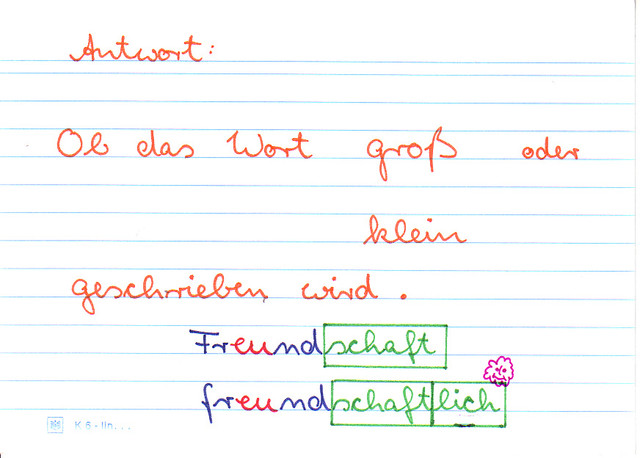 Antwort:
Ob das Wort groß oder
klein
geschrieben wird.
Freundschaft
freundschaftlich
K 5 - lin. . .